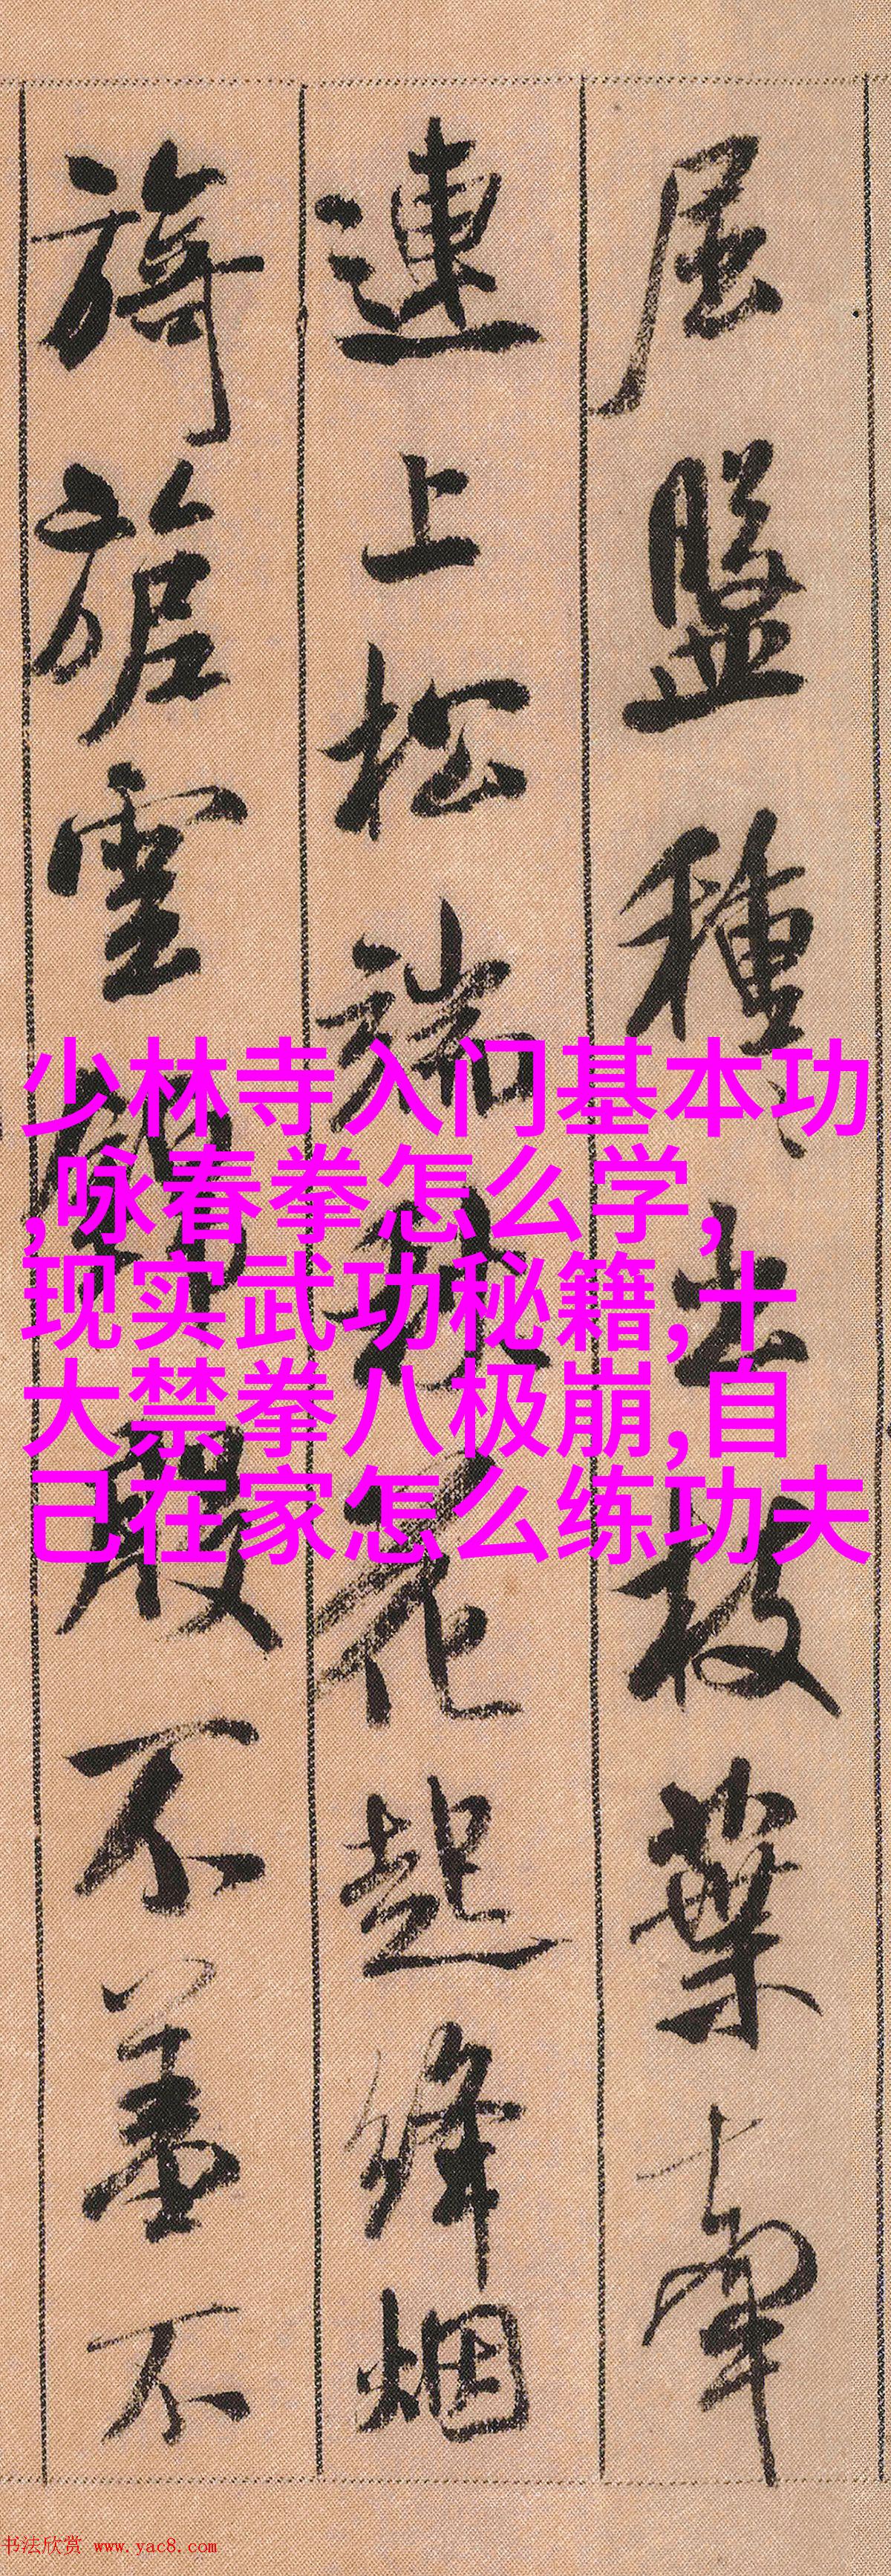 屈盤種〻出枝葉牽
連上松端秋花起絳烟
旖旎雲錦殷不羞不
少林寺入门基本功
,咏春拳怎么学,
现实武功秘籍,十
大禁拳八极崩,自
己在家怎么练功夫
书法欣赏 www.yac8.com